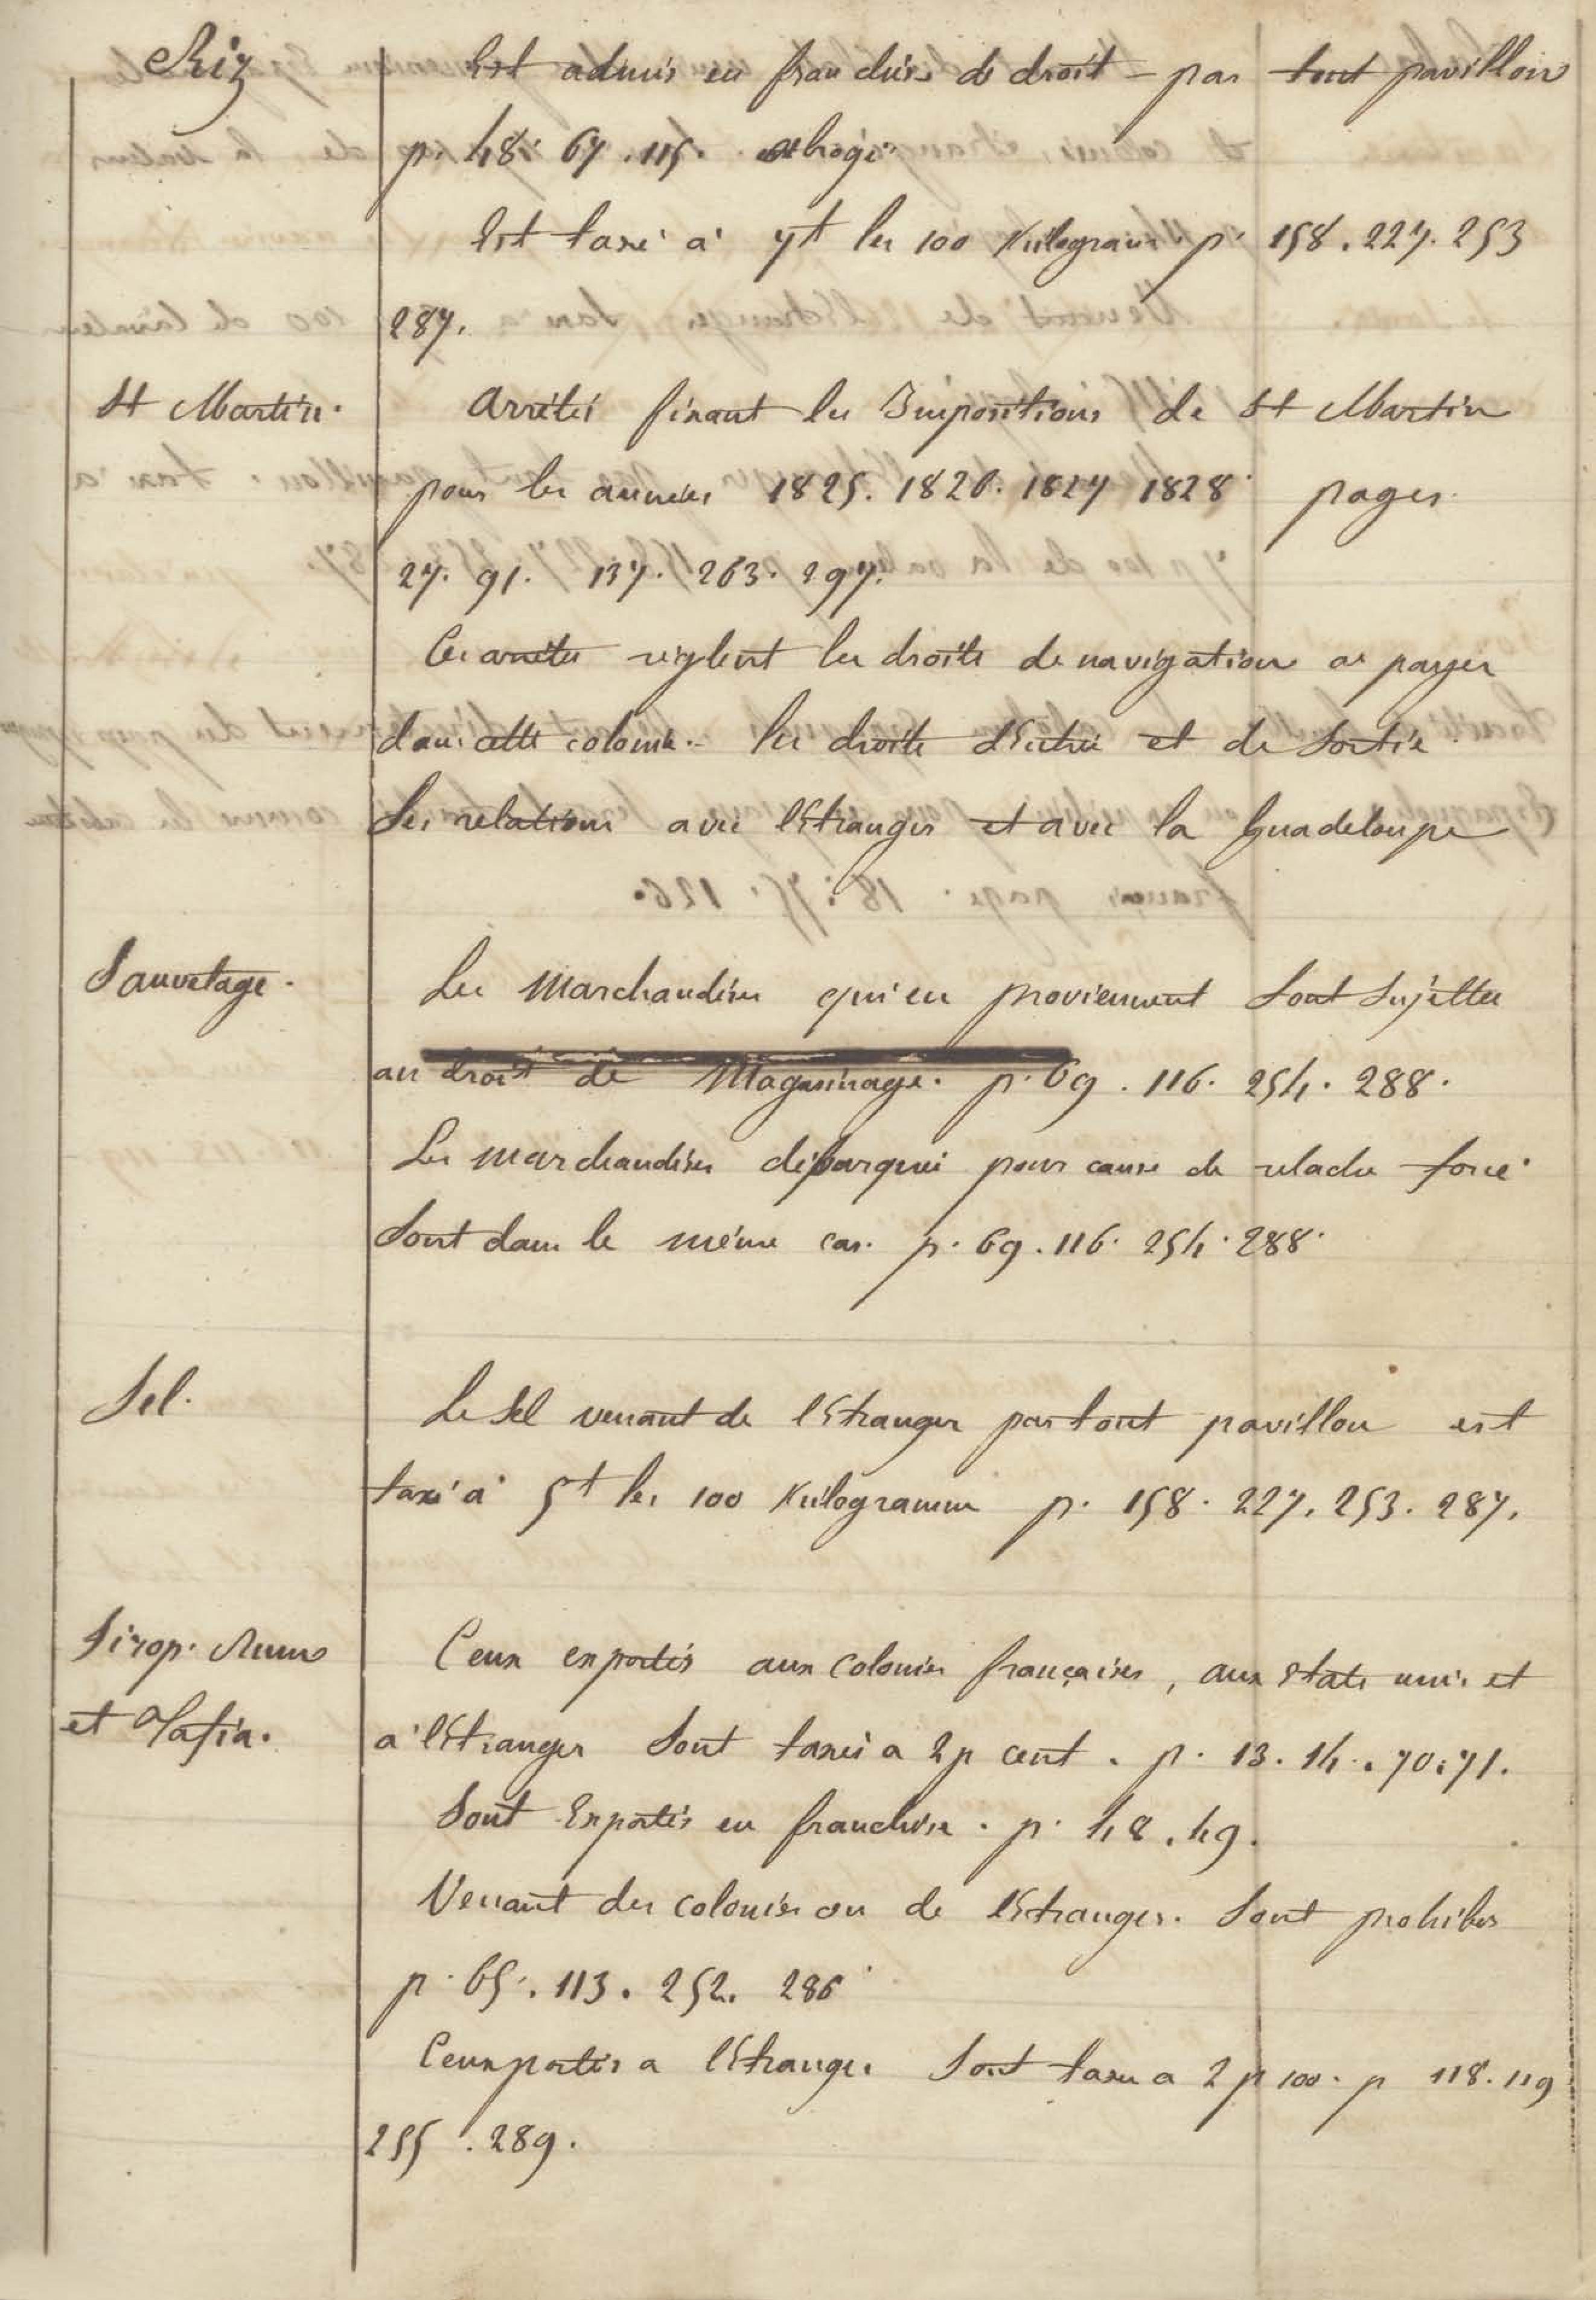 Riz
Est admis en franchise de droit – par tout pavillon
p. 48. 67. 115. abrogé
Est taxé a 7f les 100 Kilogram. p. 158. 227. 253
287.
St Martin.
Arrêtés fixant les Impositions de St Martin
pour les années 1825. 1826. 1827 1828 pages
27. 91. 137. 263. 297.
Ces arrêtés règlent les droits de navigation a payer
dans cette colonie. – les droits d'Entrée et de Sortie
Ses relations avec l'Etranger et avec la Guadeloupe
Sauvetage.
Les Marchandises qui en proviennent Sont Sujettes
au droit de Magasinage. p. 69. 116. 254. 288.
Les marchandises débarqués pour cause de relache forcé
Sont dans le même cas. p. 69. 116. 254. 288.
Sel.
Le Sel venant de l'Etranger par tout pavillon est
taxé a 5f les 100 Kilogramm p. 158. 227. 253. 287.
Sirop. Rum
et Tafia.
Ceux exportés aux Colonies françaises, aux Etats unis et
a l'Etranger Sont taxés a 2 p cent. p. 13. 14. 70. 71.
Sont Exportés en franchise. p. 48. 49.
Venant des Colonies ou de l'Etranger. Sont prohibés
p. 65. 113. 252. 286
Ceux portés a l'Etranger Sont taxés a 2 p 100. p 118. 119
255. 289.